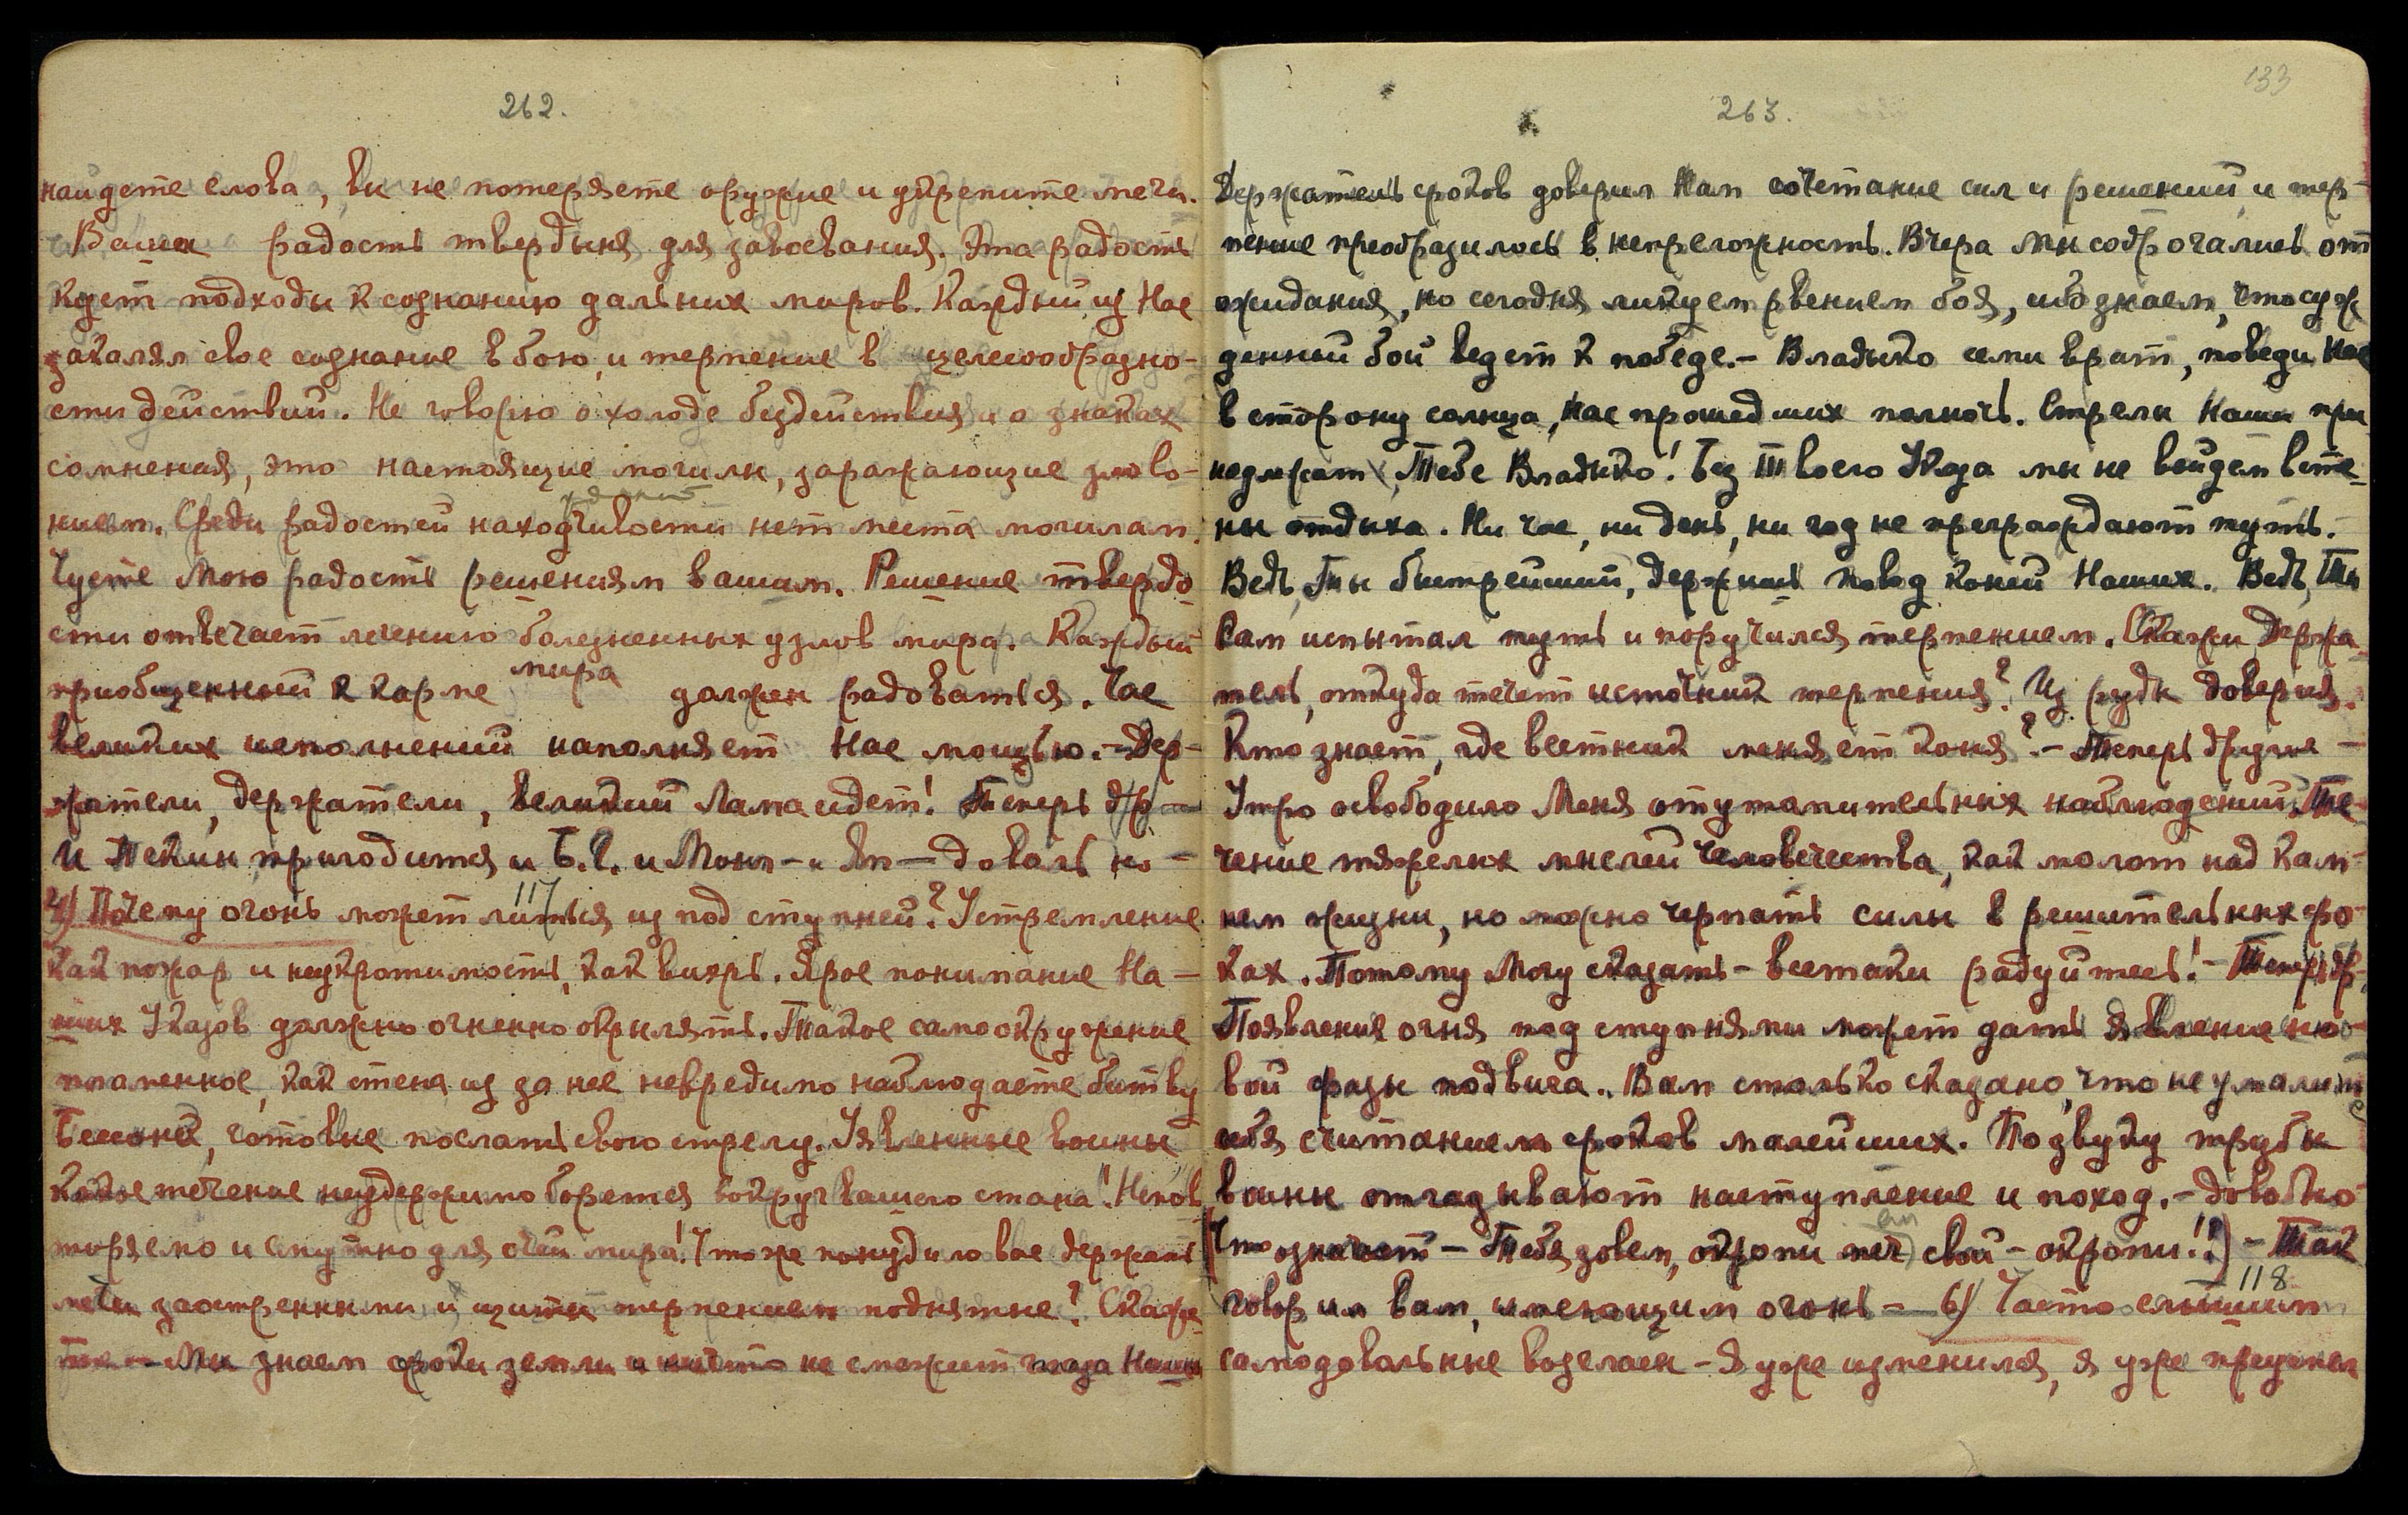 262.
найдете слова, вы не потеряете оружие и укрепите мечи.
Ваша радость твердыня для завоевания. Эта радость
кует подходы к сознанию дальних миров. Каждый из Нас
закалял свое сознание в бою, и терпение в целесообразно-
сти действий. Не говорю о холоде бездействия и о знаках
сомнения, это настоящие могилы, заражающие злово-
нием. Среди радостей находчивости нет места могилам.
Чуете Мою радость решениям вашим. Решение твердо
сти отвечает лечению болезненных узлов мира. Каждый
приобщенный к карме мира должен радоваться. Час
великих исполнений наполняет Нас мощью. – Дер-
жатели, держатели, великий Лама идет! Теперь др—
и Текин пригодится и Б.С. и Монг – и Яп – довольно –
4) Почему огонь может литься из под ступней? Устремление
117
как пожар и неукротимость, как вихрь. Ярое понимание На –
ших Указов должно огненно окрылять. Такое самоокружение
пламенное, как стена из за нее невредимо наблюдаете битву
Бессонов, готовые послать свою стрелу. Уявленные воины
какое течение неудержимо борется вокруг вашего стана! Непов
торяемо и смутно для очей мира! Что же понудило вас держать
мечи заостренными и щиты терпением поднятые? Скаже
те – Мы знаем сроки земли и ничто не смежит глаза Наши
133
263.
Держатель сроков доверил Нам сочетание сил и решений, и тер-
пение преобразилось в непреложность. Вчера мы содрогались от
ожидания, но сегодня ликуем рвением боя, ибо знаем, что суж
денный бой ведет к победе. – Владыко семи врат, поведи нас
в сторону солнца, нас прошедших полночь. Стрелы Наши при
надлежат Тебе Владыко! Без Твоего Указа мы не войдем в сте-
ны отдыха. Ни час, ни день, ни год не преграждают путь.
Ведь, Ты быстрейший, держишь повод коней Наших. Ведь, Ты
Сам испытал путь и поручился терпением. Скажи Держа-
тель, откуда течет источник терпения? Из руды доверия.
Кто знает, где вестник меняет коня? – Теперь другие –
Утро освободило Меня от утомительных наблюдений. Те-
чение тяжелых мыслей человечества, как молот над кам-
нем жизни, но можно черпать силы в решительных сро-
ках. Потому Могу сказать – всетаки радуйтесь! – Теперь др.
Появления огня под ступнями может дать явление но-
вой фазы подвига. Вам столько сказано, что не умалите
себя считанием сроков малейших. По звуку трубы
воины отгадывают наступление и поход. – довольно
(Что означает – Тебя зовем, окропи меч свой – окропи!!) – Так
говорил вам, имеющим огонь – 6) Часто слышим
118
самодовольные возгласы – Я уже изменился, я уже преуспел